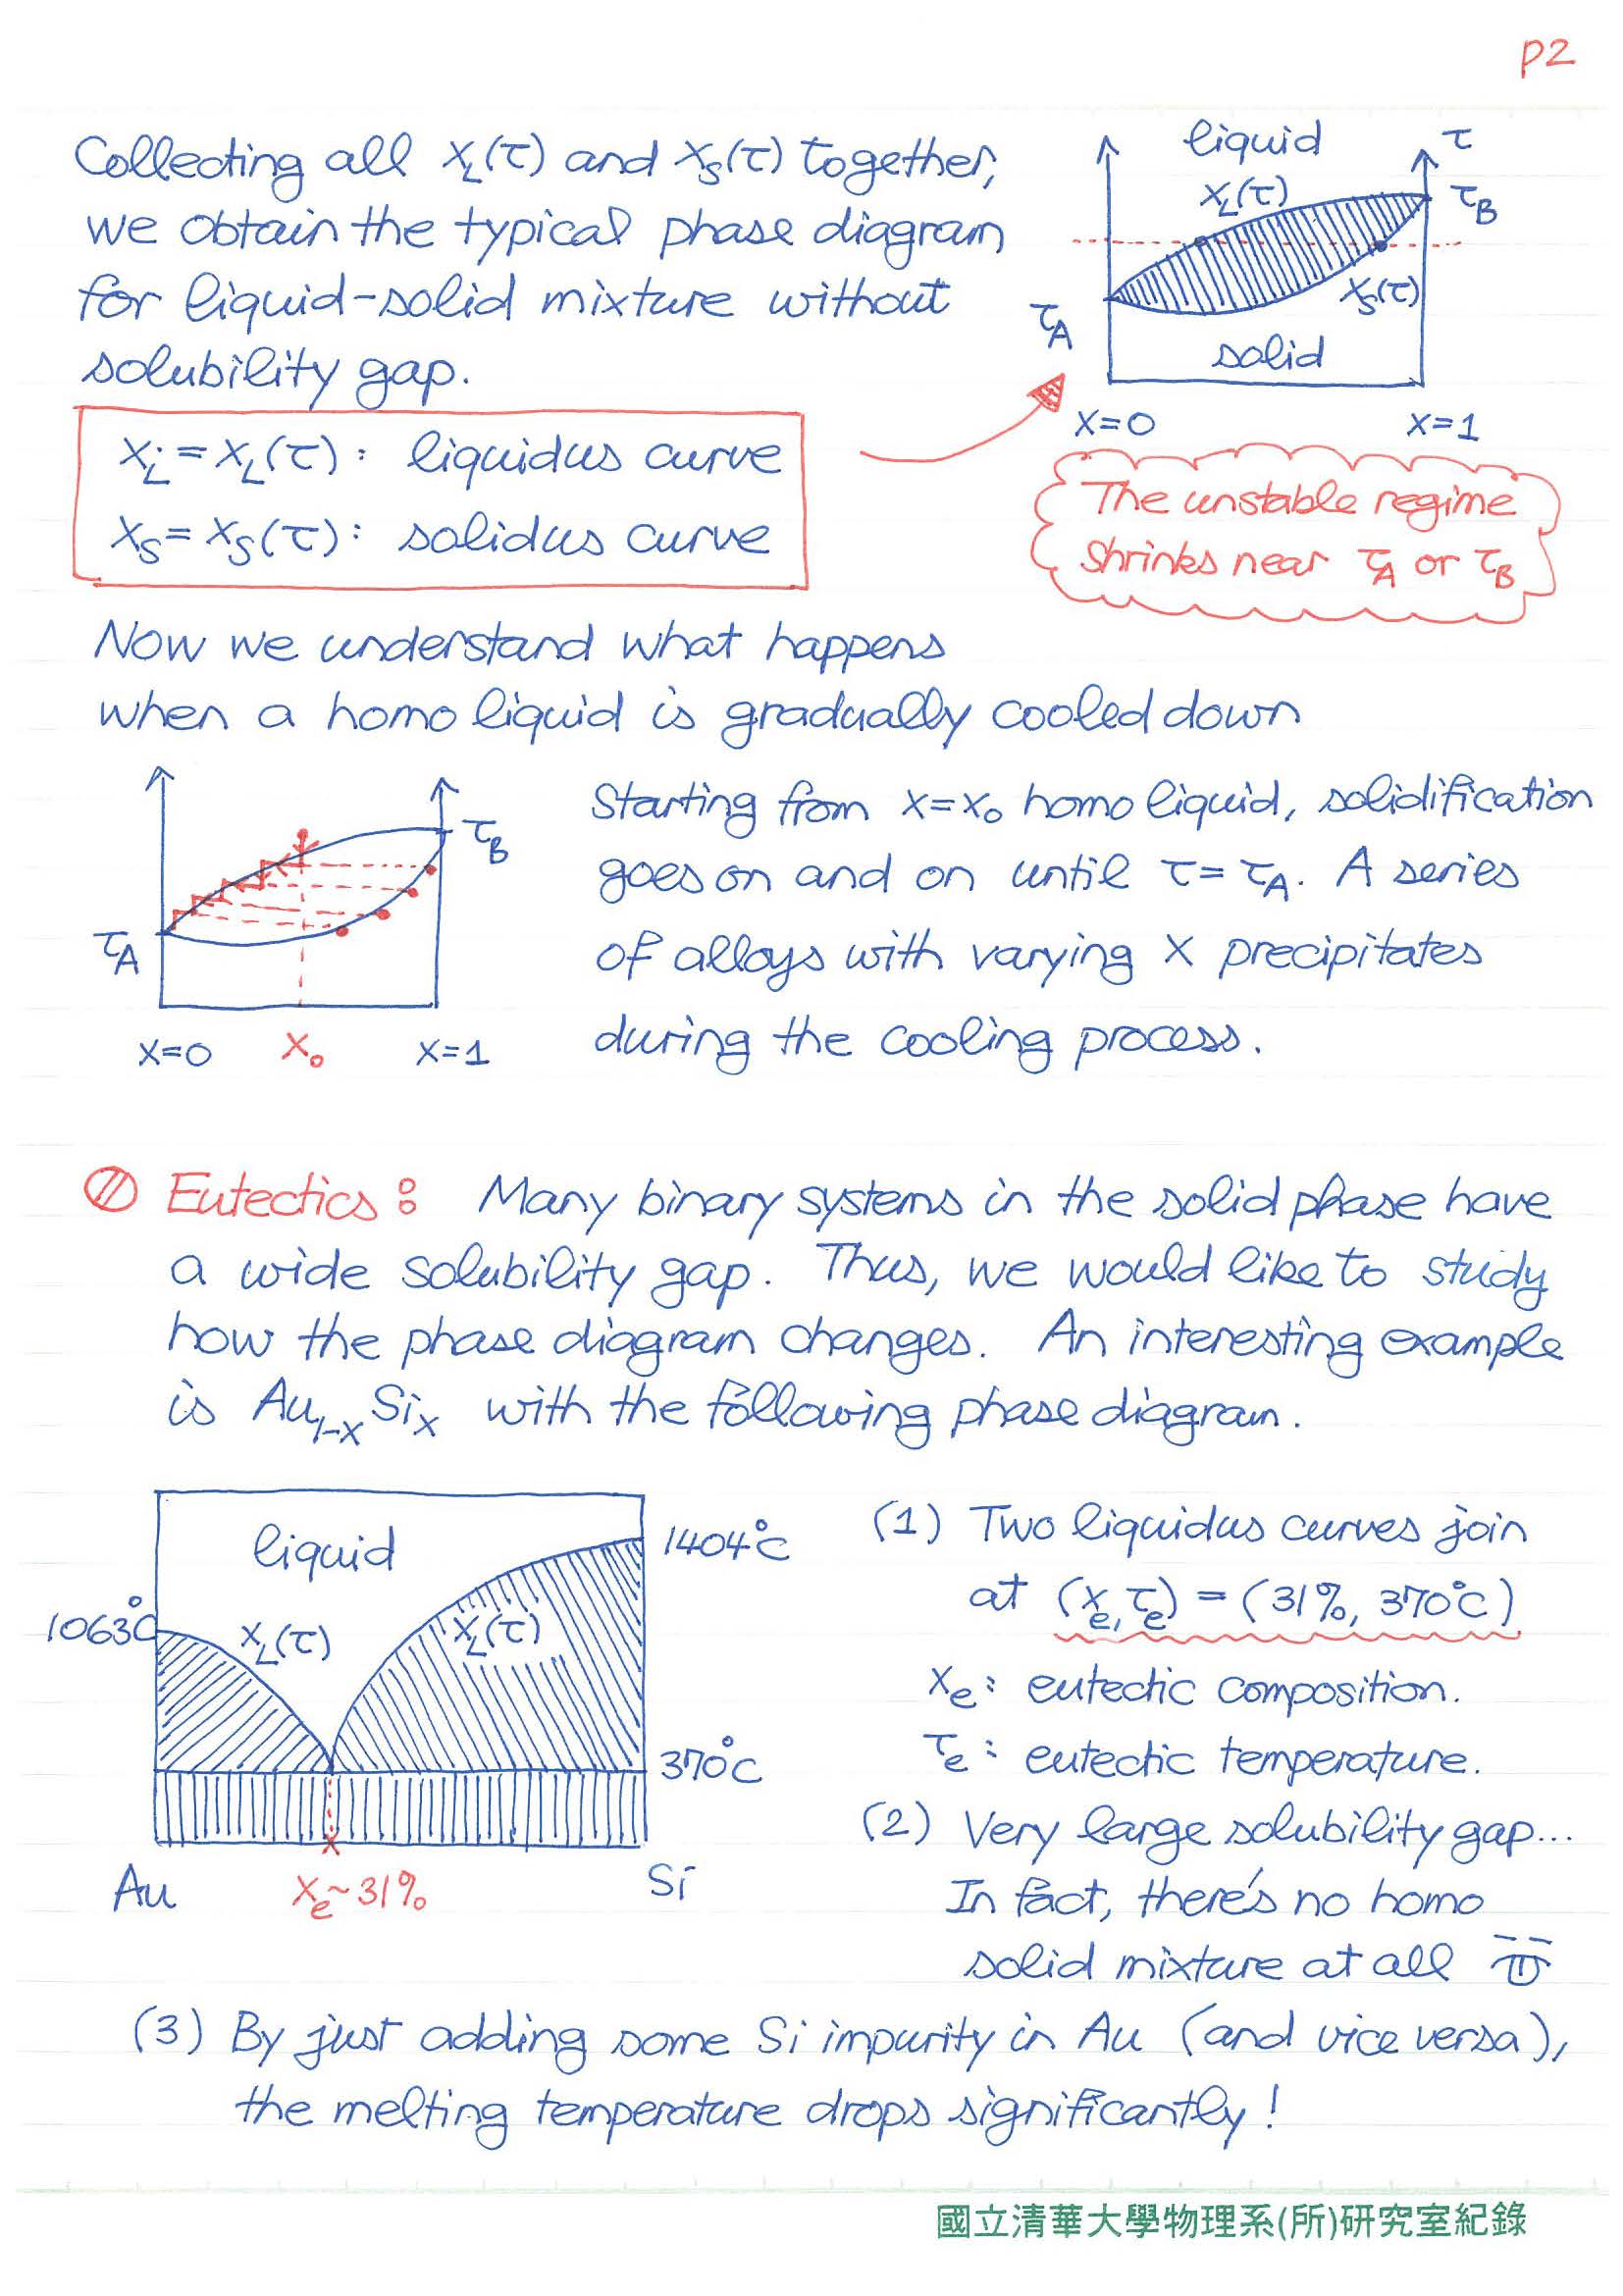 P2
Collecting all x_L(τ) and x_S(τ) together,
we obtain the typical phase diagram
for liquid-solid mixture without
solubility gap.
liquid
τ
x_L(τ)
τ_B
τ_A
x_S(τ)
solid
x=0
x=1
x_L = x_L(τ): liquidus curve
x_S = x_S(τ): solidus curve
The unstable regime
shrinks near τ_A or τ_B
Now we understand what happens
when a homo liquid is gradually cooled down
τ_B
τ_A
x=0
x_0
x=1
Starting from x=x_0 homo liquid, solidification
goes on and on until τ=τ_A. A series
of alloys with varying x precipitates
during the cooling process.
Eutectics: Many binary systems in the solid phase have
a wide solubility gap. Thus, we would like to study
how the phase diagram changes. An interesting example
is Au_{1-x}Si_x with the following phase diagram.
liquid
1404°C
1063°C
x_L(τ)
x_L(τ)
370°C
Au
x_e~31%
Si
(1) Two liquidus curves join
at (x_e, τ_e) = (31%, 370°C)
x_e: eutectic composition.
τ_e: eutectic temperature.
(2) Very large solubility gap...
In fact, there's no homo
solid mixture at all
(3) By just adding some Si impurity in Au (and vice versa),
the melting temperature drops significantly!
國立清華大學物理系(所)研究室紀錄